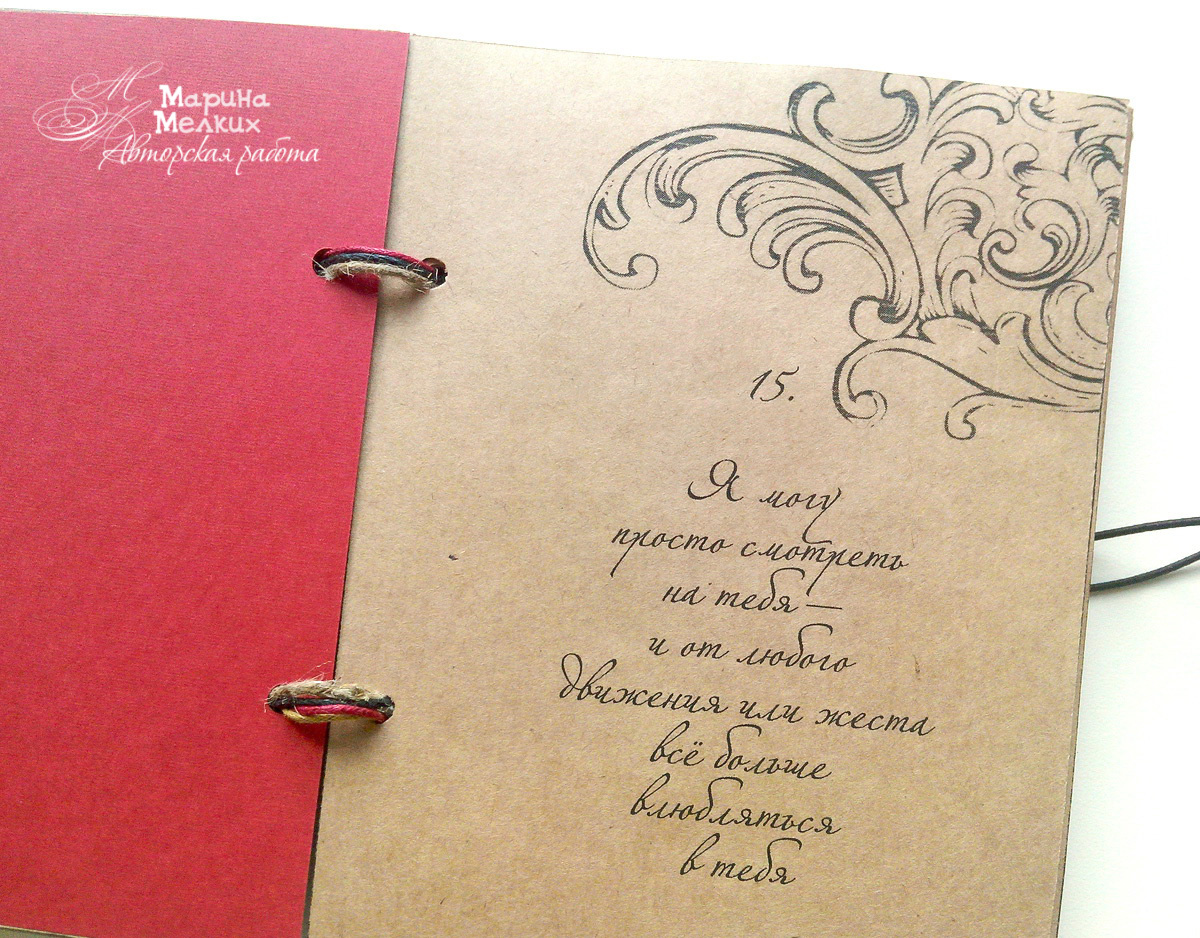 Марина
Мелких
Авторская работа
15.
Я могу
просто смотреть
на тебя —
и от любого
движения или жеста
всё больше
влюбляться
в тебя